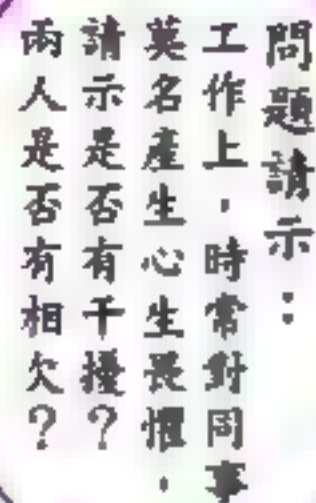 問題請示：
工作上，時常對同事
莫名產生心生畏懼，
請示是否有干擾？
兩人是否有相欠？